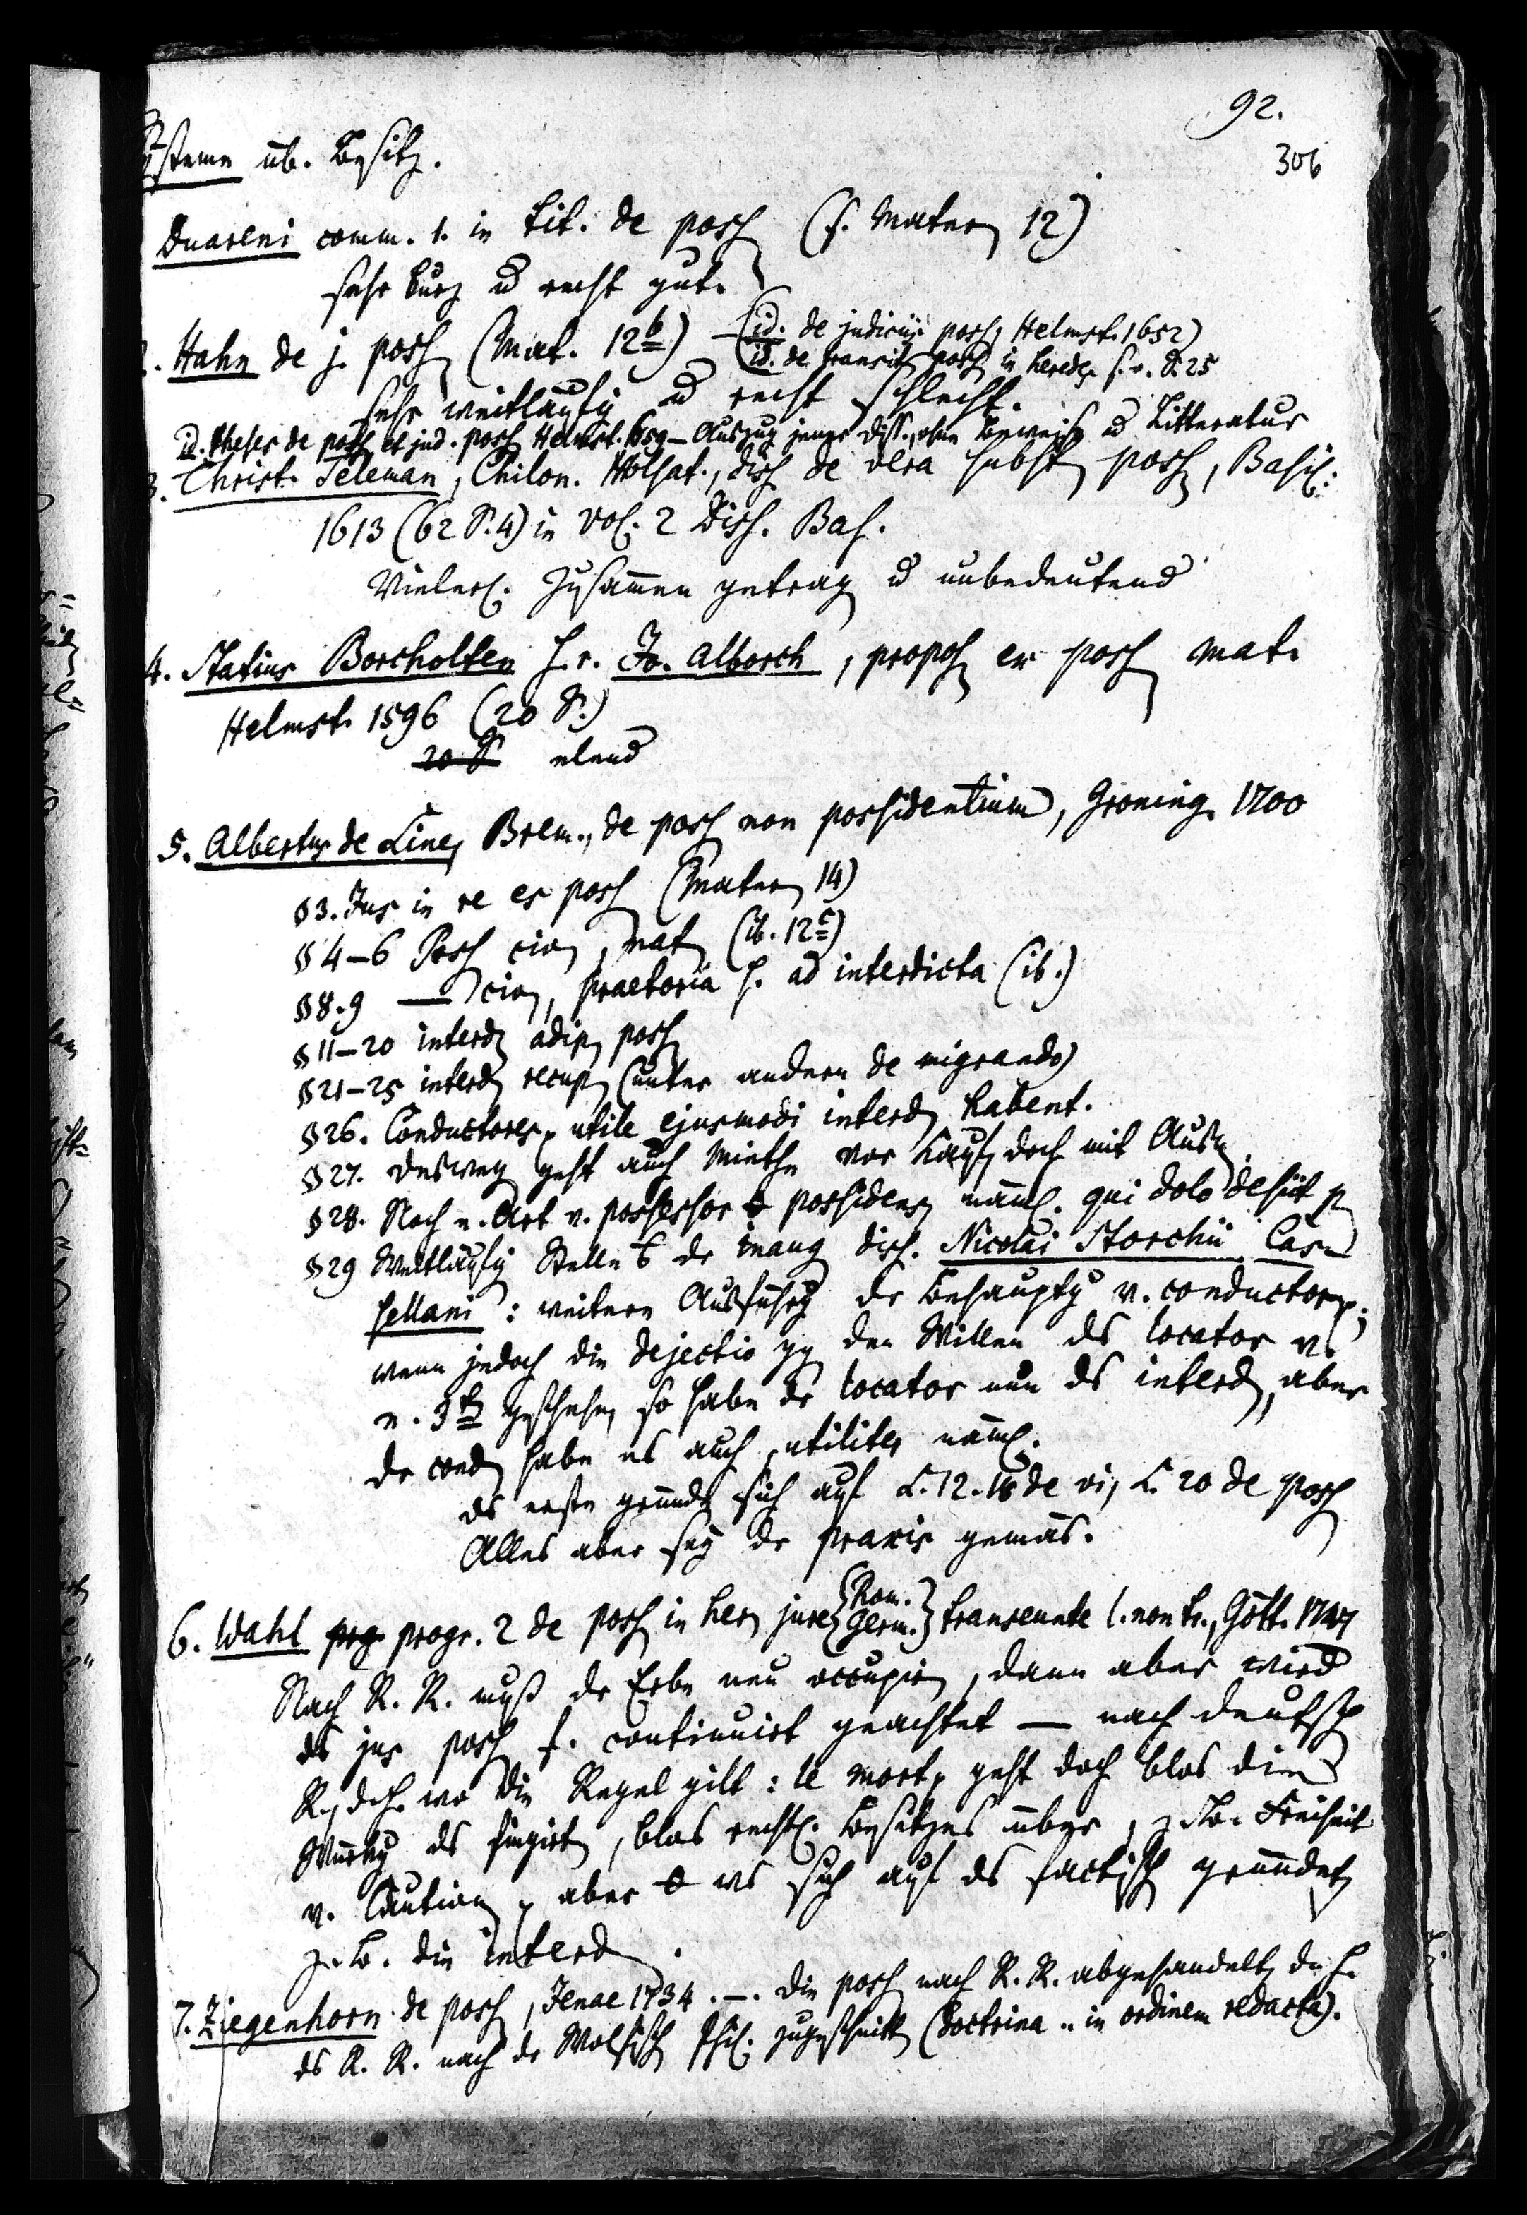 92.
306
Systeme üb. Besitz.
Duareni comm. 1. in tit. de poss (s. Mater 12)
sehr kurz u recht gut.
2. Hahn de j. poss (Mat. 12b) – (id. de judiciis poss, Helmst. 1652)
(id. de transitu poss in hered. s. v. S. 25
sehr weitläufig u recht schlecht.
id. theses de poss et jud. poss Helmst. 1659 – Auszug jener Diss., ohne Beweis u Litteratur
3. Christ. Teleman, Chilon. Holsat., diss de vera subst poss, Basil.
1613 (62 S. 4) in vol. 2 Diss. Bas.
Vielerl. zusammen getrag u unbedeutend
4. Statius Borcholten s. r. Jo. Alborch, propos ex poss mat.
Helmst. 1596 (20 S.)
20 S elend
5. Albertus de Line, Brem., de poss non possidentium, Groning. 1700
§ 3. Jus in re es poss (Mater 14)
§ 4–6 Poss civ, nat (ib. 12c)
§ 8.9 — civ, praetoria s. ad interdicta (ib.)
§ 11–20 interd adip poss
§ 21–25 interd recup (unter andern de migrando)
§ 26. Conductores utile ejusmodi interd habent.
§ 27. desweg geht auch Miethe vor Kauf, doch mit Ausn.
§ 28. Noch e. Art v. possessor possidens, näml. qui dolo desiit p
§ 29 Weitläufig Stelle de inaug diss. Nicolai Storchii Cas
sellani: weitere Ausführg der Behauptg v. conductor;
wenn jedoch die dejectio gg den Willen ds locator v
e. 3tn geschehn, so habe dr locator nun ds interd, aber
dr cond habe es auch, utiliter näml.
ds erste gründt sich auf L. 12. 18 de vi, L. 20 de poss
Alles aber sey dr praxis gemäs.
6. Wahl prg progr. 2 de poss in her jure {Rom. Germ.} transeunte l. non tr., Gött. 1747
Nach R. R. muß dr Erbe neu occupir, dann aber wird
ds jus poss f. continuirt geachtet — nach deutsch
R., d. h. wo die Regel gilt: le mort, geht doch blos die
Würkg ds fingirt, blos rechtl. Besitzes über, z. B. Freiheit
v. Caution, aber was sich auf ds factisch gründet
z. B. die interd.
7. Ziegenhorn de poss, Jenae 1734. —. Die poss nach R. R. abgehandelt, d. h.
ds R. R. nach dr Wolfisch Phil. zugeschnitt (doctrina .. in ordinem redacta).